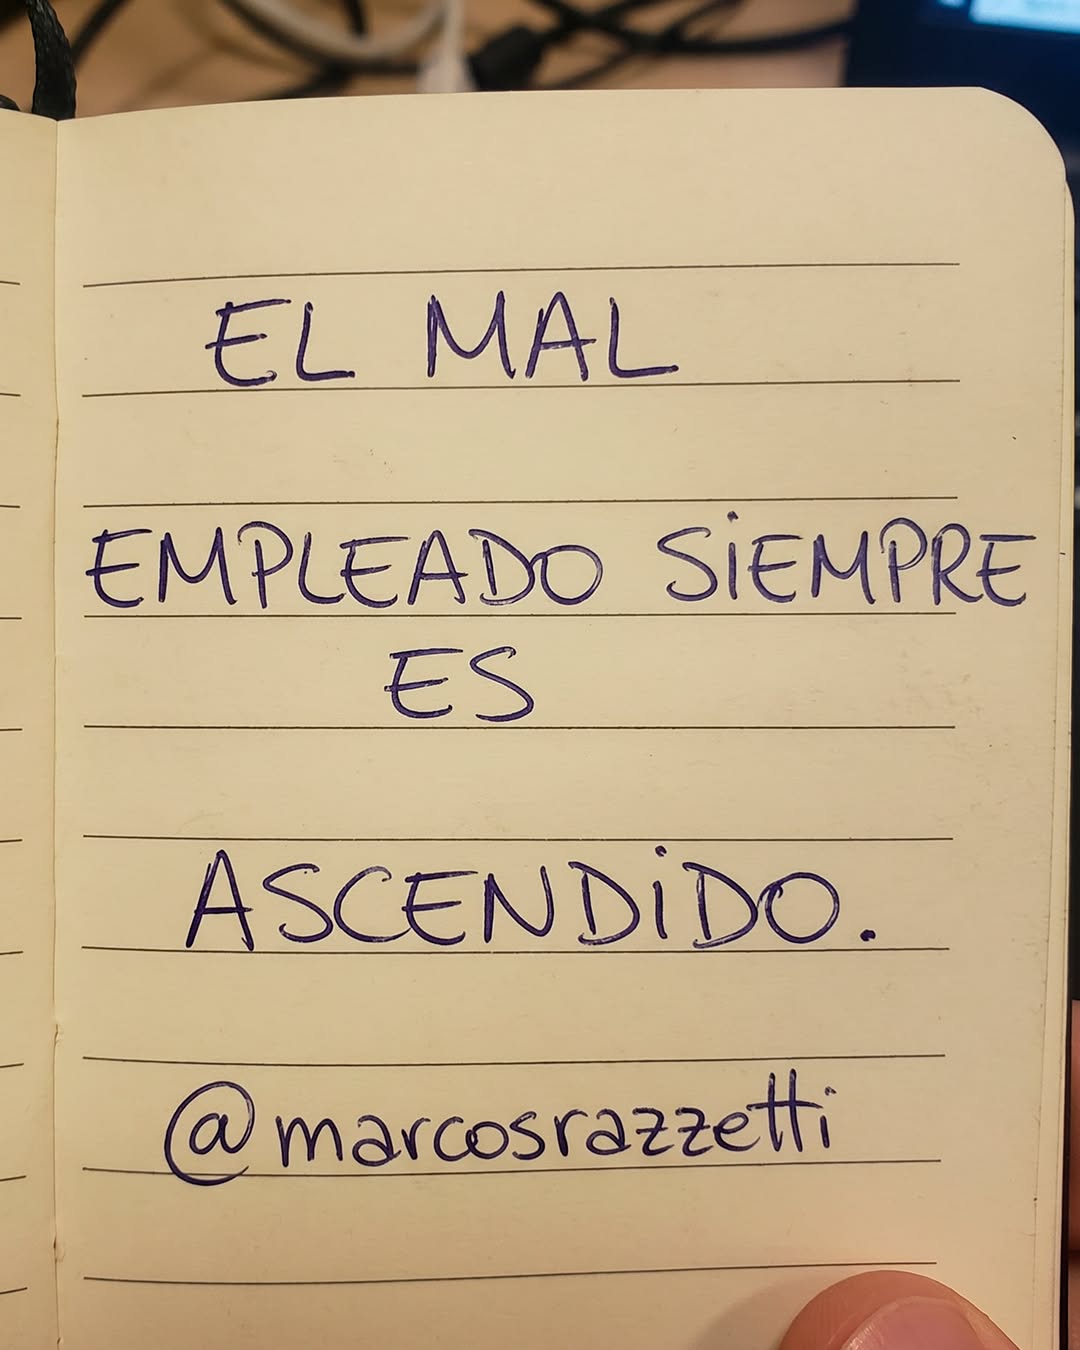 EL MAL
EMPLEADO SIEMPRE
ES
ASCENDIDO.
@marcosrazzetti